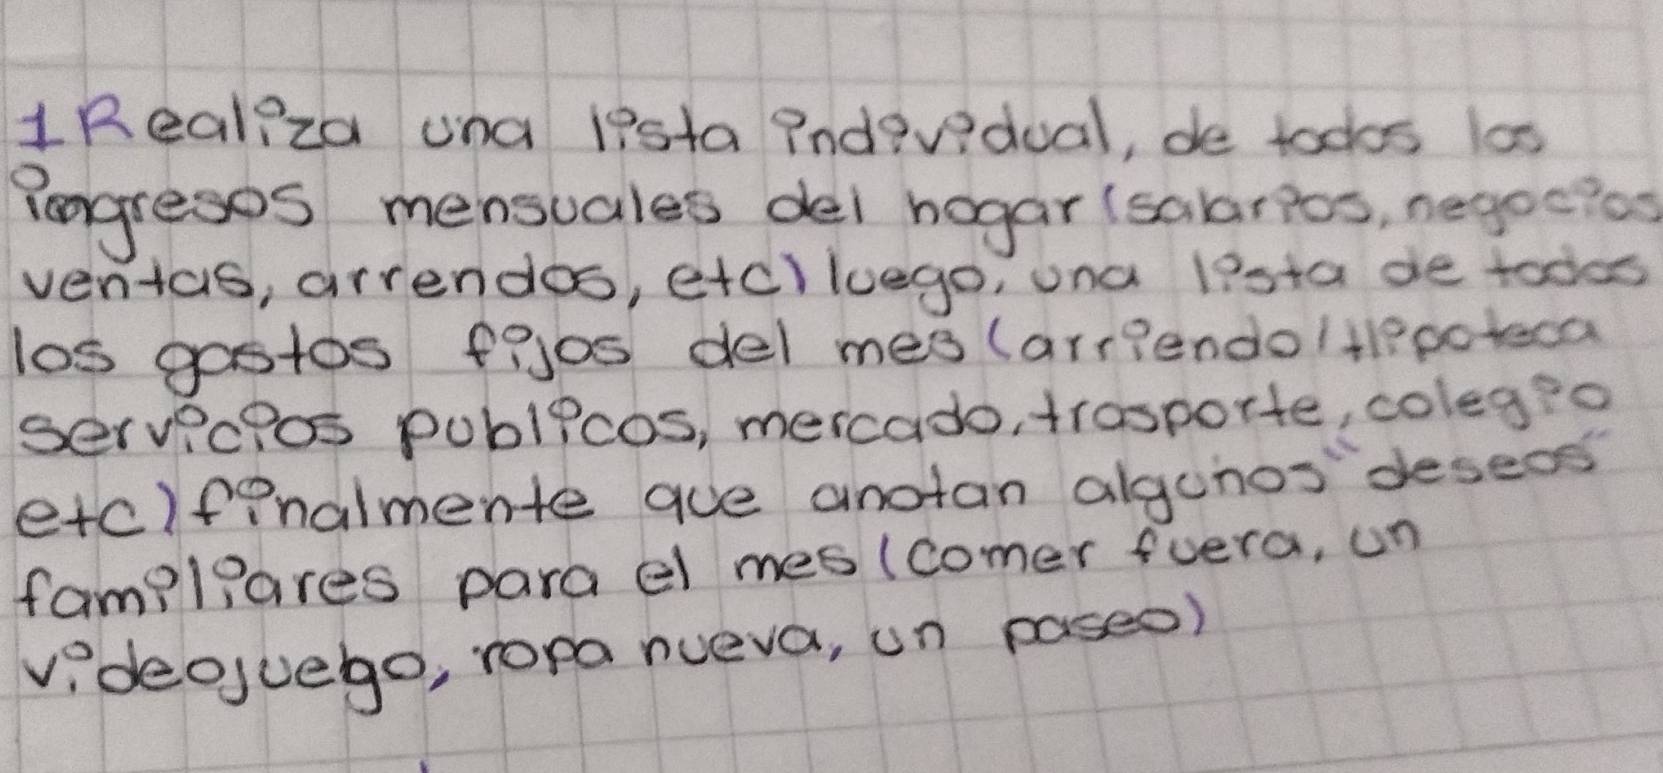 1 Realiza una lista individual, de todos los
ingresos mensuales del hogar (salarios, negocios
ventas, arrendos, etc) luego, una lista de todos
los gastos fijos del mes (arriendo/Hipoteca
servicios publicos, mercado, trasporte, colegio
etc) finalmente que anotan algunos "deseos"
familiares para el mes (comer fuera, un
videojuego, ropa nueva, un paseo)